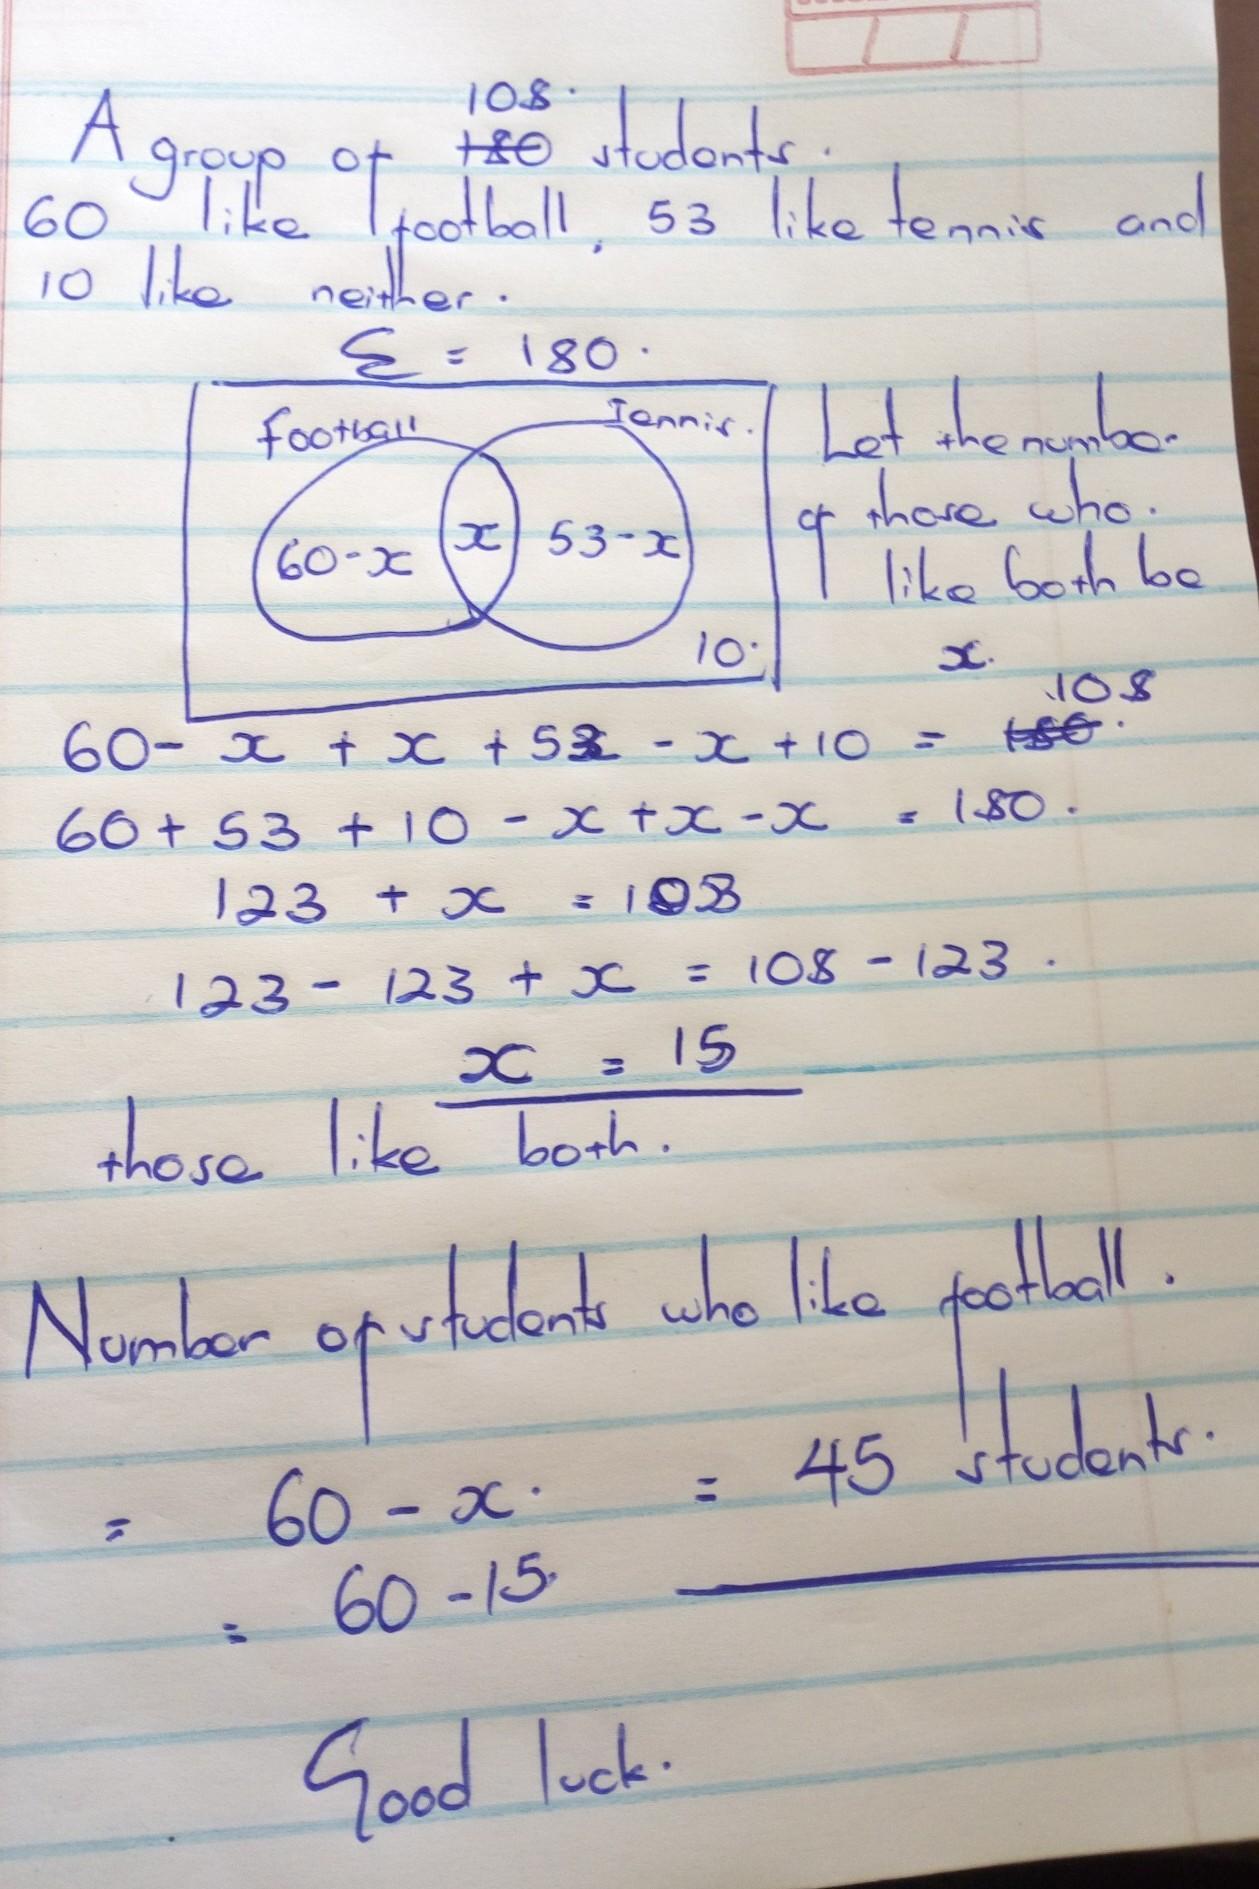 108.
A group of 180 students.
60 like football, 53 like tennis and
10 like neither.
ξ = 180.
Football Tennis.
60-x x 53-x
10.
Let the number
of those who.
like both be
x.
108
60- x + x + 53 - x +10 = 180.
60+ 53 +10 - x +x -x = 180.
123 + x = 108
123 - 123 + x = 108 - 123.
x = 15
those like both.
Number of students who like football.
= 60 - x. = 45 students.
= 60 -15.
Good luck.